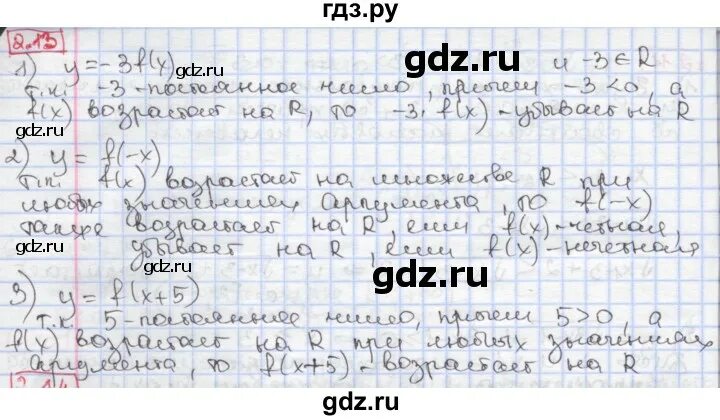 гдз.ру
2.13
1) y = -3f(x) и -3 ∈ R
т.к. -3 - постоянное число, причем -3 < 0, а
f(x) возрастает на R, то -3·f(x) - убывает на R
2) y = f(-x)
т.к. f(x) возрастает на множестве R при
любых значениях аргумента, то f(-x)
также возрастает на R, если f(x) - четная,
убывает на R, если f(x) - нечетная
3) y = f(x+5)
т.к. 5 - постоянное число, причем 5 > 0, а
f(x) возрастает на R при любых значениях
аргумента, то f(x+5) - возрастает на R
2.14
gdz.ru
gdz.ru
gdz.ru
gdz.ru
gdz.ru
gdz.ru
gdz.ru
gdz.ru